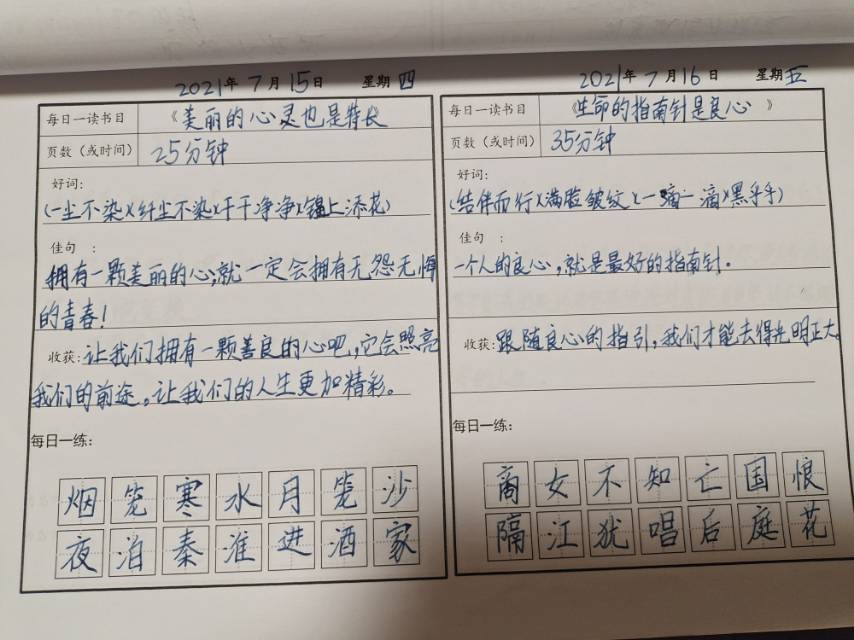 2021年7月15日 星期四
每日一读书目 《美丽的心灵也是特长
页数（或时间） 25分钟
好词：
(一尘不染)(纤尘不染)(干干净净)(锦上添花)
佳句 ：
拥有一颗美丽的心,就一定会拥有无怨无悔
的青春!
收获：让我们拥有一颗善良的心吧,它会照亮
我们的前途。让我们的人生更加精彩。
每日一练：
烟笼寒水月笼沙
夜泊秦淮进酒家
2021年7月16日 星期五
每日一读书目 《生命的指南针是良心 》
页数（或时间） 35分钟
好词：
(结伴而行)(满脸皱纹)(一滴一滴)(黑乎乎)
佳句 ：
一个人的良心,就是最好的指南针.
收获：跟随良心的指引,我们才能去得光明正大.
每日一练：
商女不知亡国恨
隔江犹唱后庭花